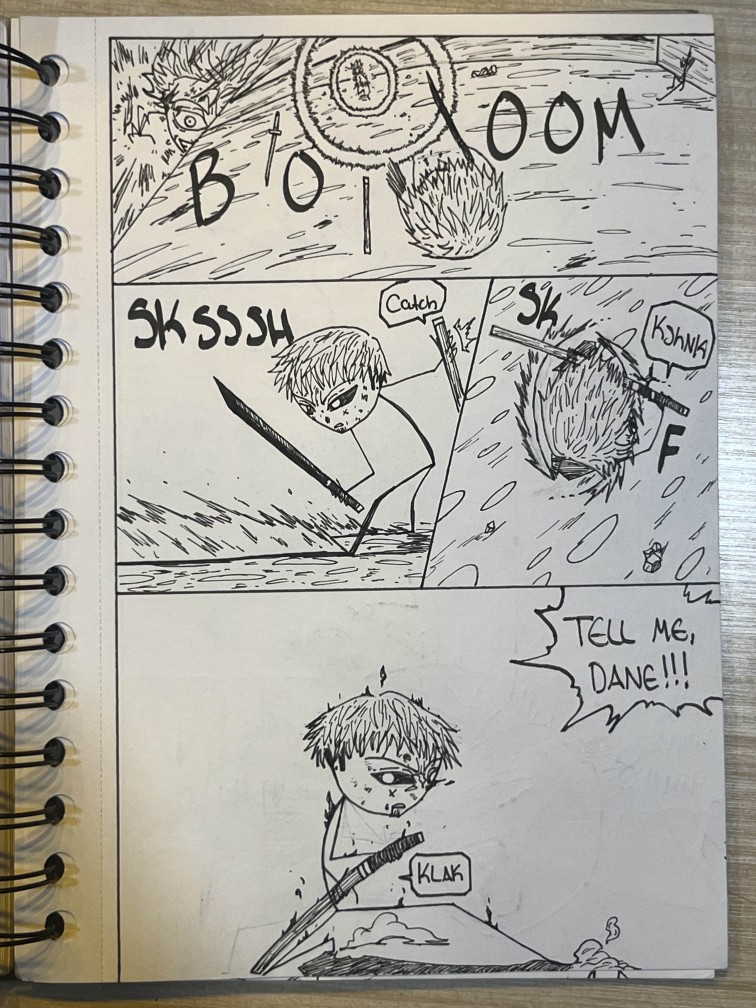 BOOOOM
SKSSSH
Catch
SK
KShNK
F
TELL ME,
DANE!!!
KLAK